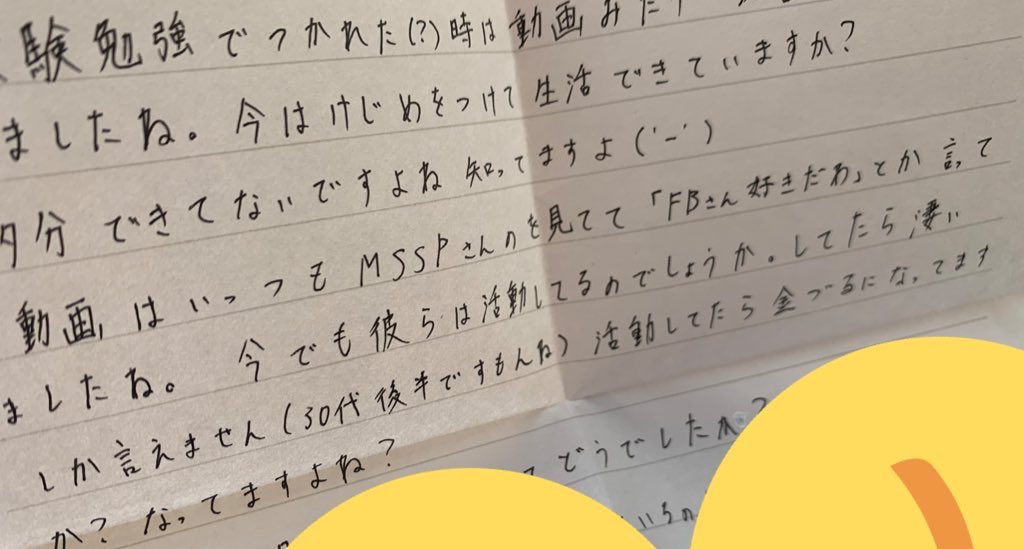 験勉強でつかれた(?)時は動画みた
ましたね。今はけじめをつけて生活できていますか?
多分できてないですよね知ってますよ('-')
動画はいっつもMSSPさんのを見てて「FBさん好きだわ」とか言って
ましたね。今でも彼らは活動してるのでしょうか。してたら凄い
しか言えません(30代後半ですもんね)活動してたら金づるになってます
か?なってますよね?
どうでしたか?
いちの